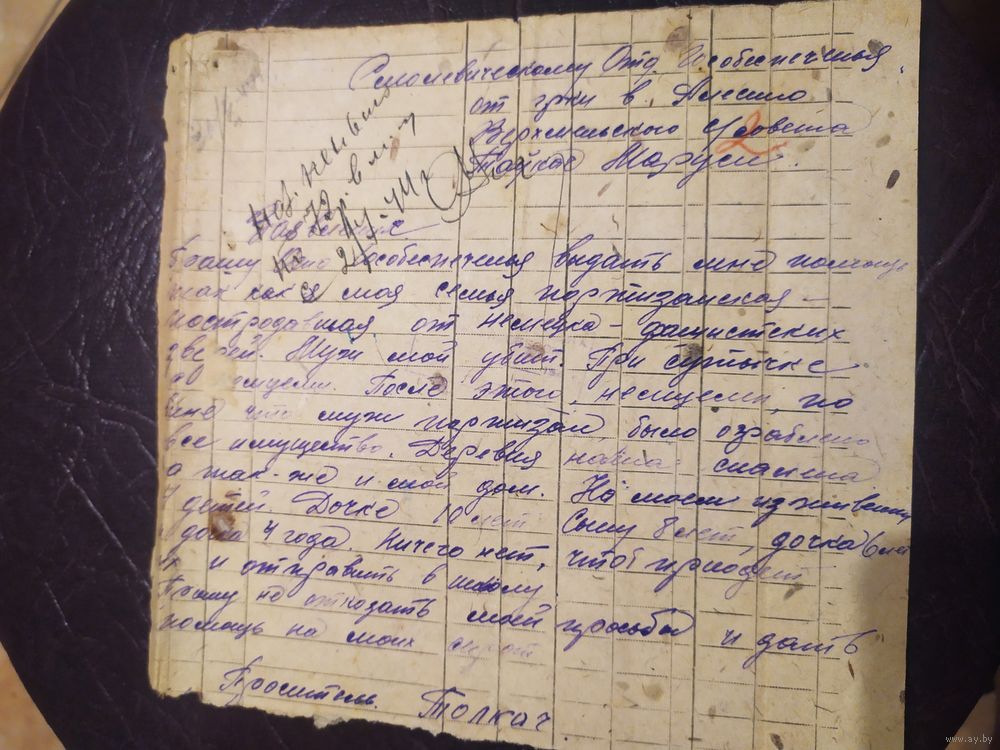 Смолевическому Отд. Гособеспеченья
от гр-ки в. Алесино
Верхменьского с/совета
Толкач Маруси.
2
Заявление
Прошу Отд Гособеспеченья выдать мне помощь
так как моя семья партизанская –
пострадавшая от немецка-фашистских
зверей. Муж мой убит. При сутычке
с немцеми. После этого, немцеми, по
что муж партизан, было ограблено
все имущество. Деревня наша спалена
а так-же и мой дом. На моем иждивении
4 детей. Дочке 10 лет Сыну 8 лет, дочка 6 лет
4 года. Ничего нет, чтоб приодеть
их и отправить в школу
Прошу не отказать моей прозьбы и дать
помощь на моих сирот
Проситель. Толкач
www.ay.by